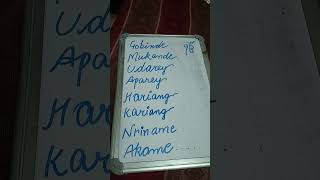 Gobinde
Mukande
Udarey
Aparey
Hariang
Kariang
Nriname
Akame.....